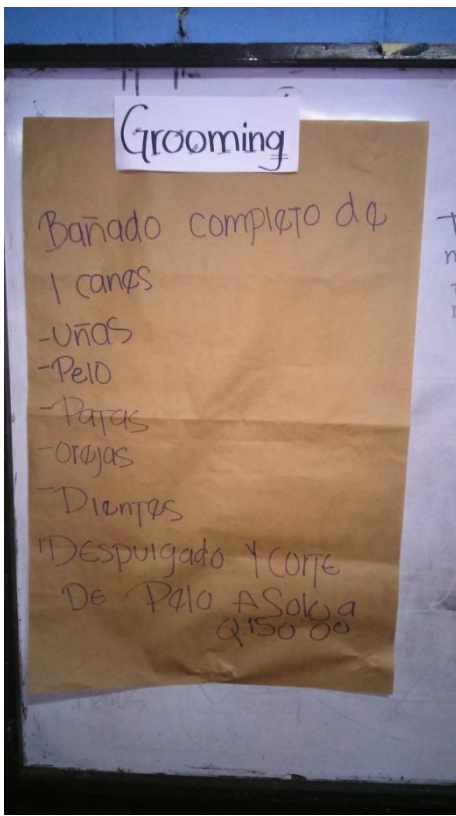 Grooming
Bañado completo de
1 canes
-Uñas
-Pelo
-Patas
-Orejas
-Dientes
"Despulgado y corte
De Pelo A Solo a
Q.150.00